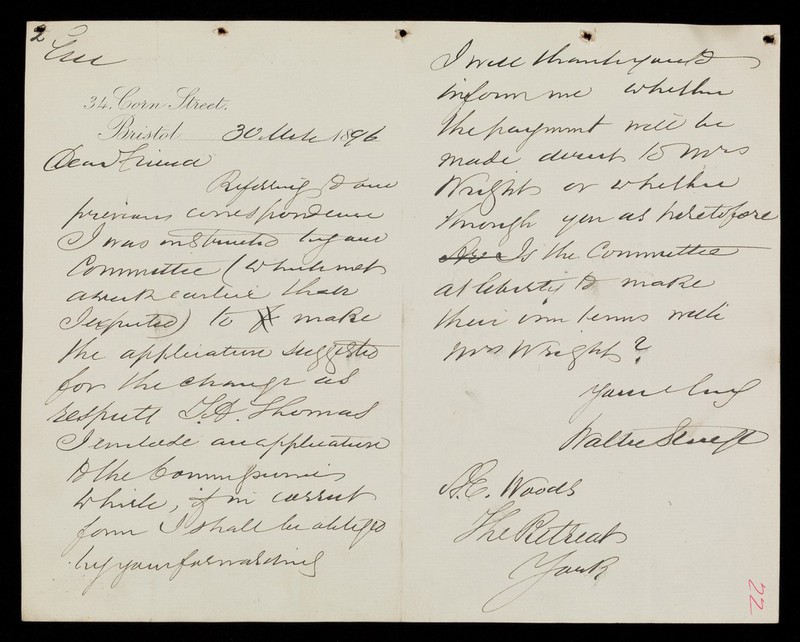 2
34, Corn Street,
Bristol 30 Mch 1896
Dear Friend
Referring to our
previous correspondence
I was instructed by our
Committee (which met
a week earlier than
I expected) to make
the application suggested
for the change as
respects T.A. Thomas
I enclose an application
to the Commissioners
which, if in correct
form I shall be obliged
by your forwarding
I will thank you to
inform me whether
the payment will be
made direct to Mrs
Wright or whether
through you as heretofore
Is the Committee
at liberty to make
their own terms with
Mrs Wright?
Yours truly
Walter Sturge
H.C. Woods
The Retreat
York
22